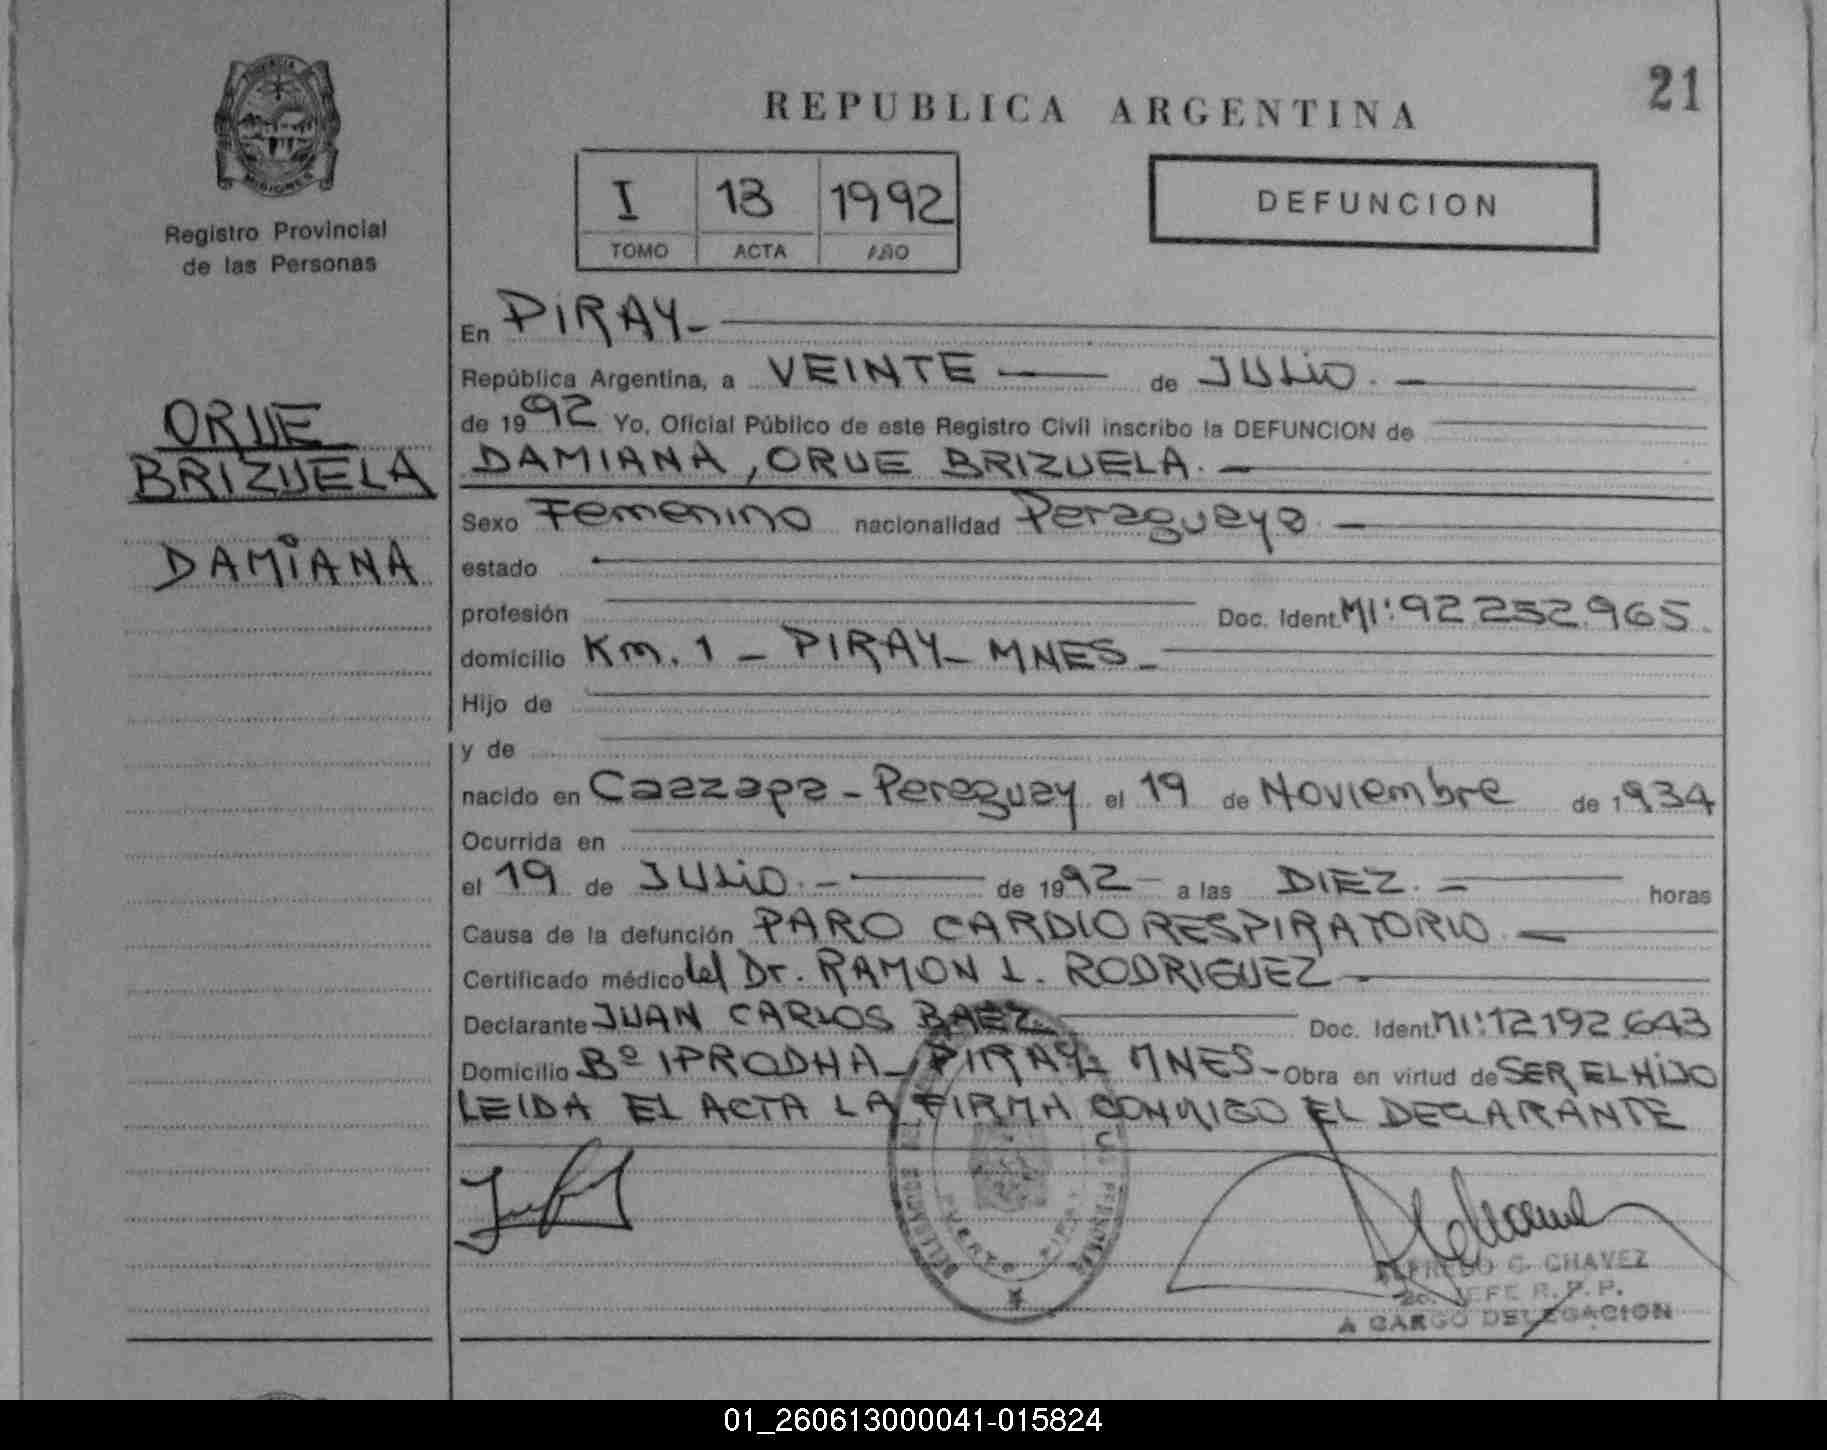 21
REPUBLICA ARGENTINA
I 13 1992
TOMO ACTA AÑO
DEFUNCION
PROVINCIA
MISIONES
Registro Provincial
de las Personas
ORUE
BRIZUELA
DAMIANA
En PIRAY-
República Argentina, a VEINTE de JULIO.-
de 1992 Yo, Oficial Público de este Registro Civil inscribo la DEFUNCION de
DAMIANA, ORUE BRIZUELA.-
Sexo Femenino nacionalidad Paraguaya.-
estado
profesión Doc. Ident. MI: 92.252.965.
domicilio Km. 1 - PIRAY - MNES -
Hijo de
y de
nacido en Caazapa - Paraguay el 19 de Noviembre de 1934
Ocurrida en
el 19 de JULIO.- de 1992 - a las DIEZ.- horas
Causa de la defunción PARO CARDIO RESPIRATORIO -
Certificado médico del Dr. RAMON L. RODRIGUEZ -
Declarante JUAN CARLOS BAEZ Doc. Ident. MI: 12192.643
Domicilio Bº IPRODHA - PIRAY - MNES - Obra en virtud de SER EL HIJO
LEIDA EL ACTA LA FIRMA CONMIGO EL DECLARANTE
PUERTO PIRAY
ALFREDO C. CHAVEZ
2o. JEFE R.P.P.
A CARGO DELEGACION
01_260613000041-015824